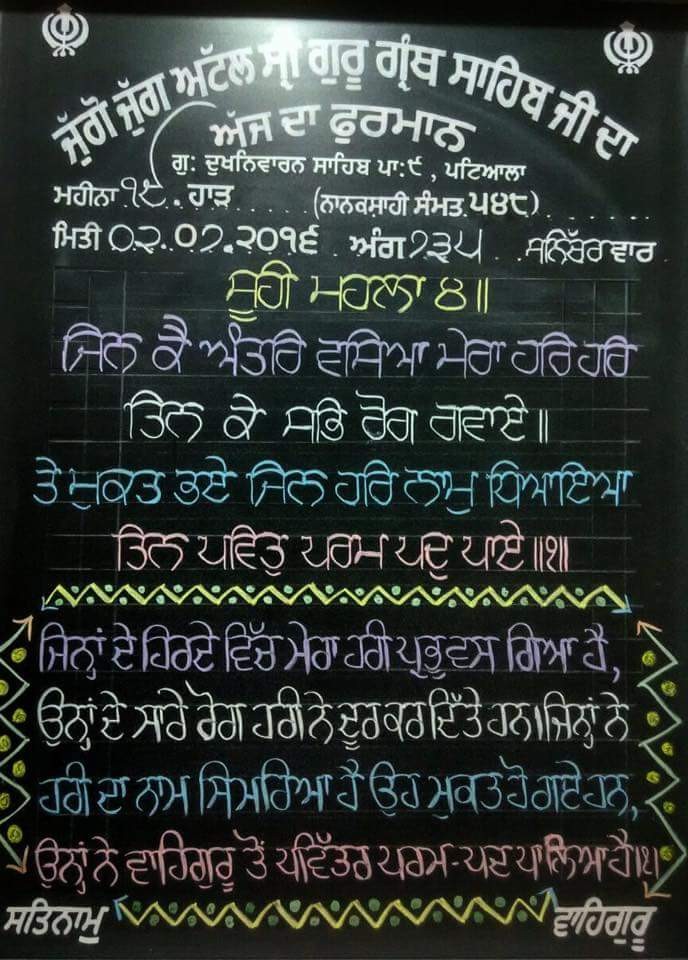 ਜੁੱਗੋ ਜੁੱਗ ਅਟੱਲ ਸ੍ਰੀ ਗੁਰੂ ਗ੍ਰੰਥ ਸਾਹਿਬ ਜੀ ਦਾ
ਅੱਜ ਦਾ ਫੁਰਮਾਨ
ਗੁ: ਦੁਖਨਿਵਾਰਨ ਸਾਹਿਬ ਪਾ:੯, ਪਟਿਆਲਾ
ਮਹੀਨਾ ੧੯. ਹਾੜ (ਨਾਨਕਸ਼ਾਹੀ ਸੰਮਤ ੫੪੮)
ਮਿਤੀ ੦੨.੦੭.੨੦੧੬ ਅੰਗ ੭੩੫ ਸ਼ਨਿੱਚਰਵਾਰ
ਸੂਹੀ ਮਹਲਾ ੪॥
ਜਿਨ ਕੈ ਅੰਤਰਿ ਵਸਿਆ ਮੇਰਾ ਹਰਿ ਹਰਿ
ਤਿਨ ਕੇ ਸਭਿ ਰੋਗ ਗਵਾਏ॥
ਤੇ ਮੁਕਤ ਭਏ ਜਿਨ ਹਰਿ ਨਾਮੁ ਧਿਆਇਆ
ਤਿਨ ਪਵਿਤੁ ਪਰਮ ਪਦੁ ਪਾਏ॥੧॥
ਜਿਨ੍ਹਾਂ ਦੇ ਹਿਰਦੇ ਵਿੱਚ ਮੇਰਾ ਹਰੀ ਪ੍ਰਭੂ ਵਸ ਗਿਆ ਹੈ,
ਉਨ੍ਹਾਂ ਦੇ ਸਾਰੇ ਰੋਗ ਹਰੀ ਨੇ ਦੂਰ ਕਰ ਦਿੱਤੇ ਹਨ।ਜਿਨ੍ਹਾਂ ਨੇ
ਹਰੀ ਦਾ ਨਾਮ ਸਿਮਰਿਆ ਹੈ ਉਹ ਮੁਕਤ ਹੋ ਗਏ ਹਨ,
ਉਨ੍ਹਾਂ ਨੇ ਵਾਹਿਗੁਰੂ ਤੋਂ ਪਵਿੱਤਰ ਪਰਮ-ਪਦ ਪਾ ਲਿਆ ਹੈ।੧।
ਸਤਿਨਾਮੁ ਵਾਹਿਗੁਰੂ